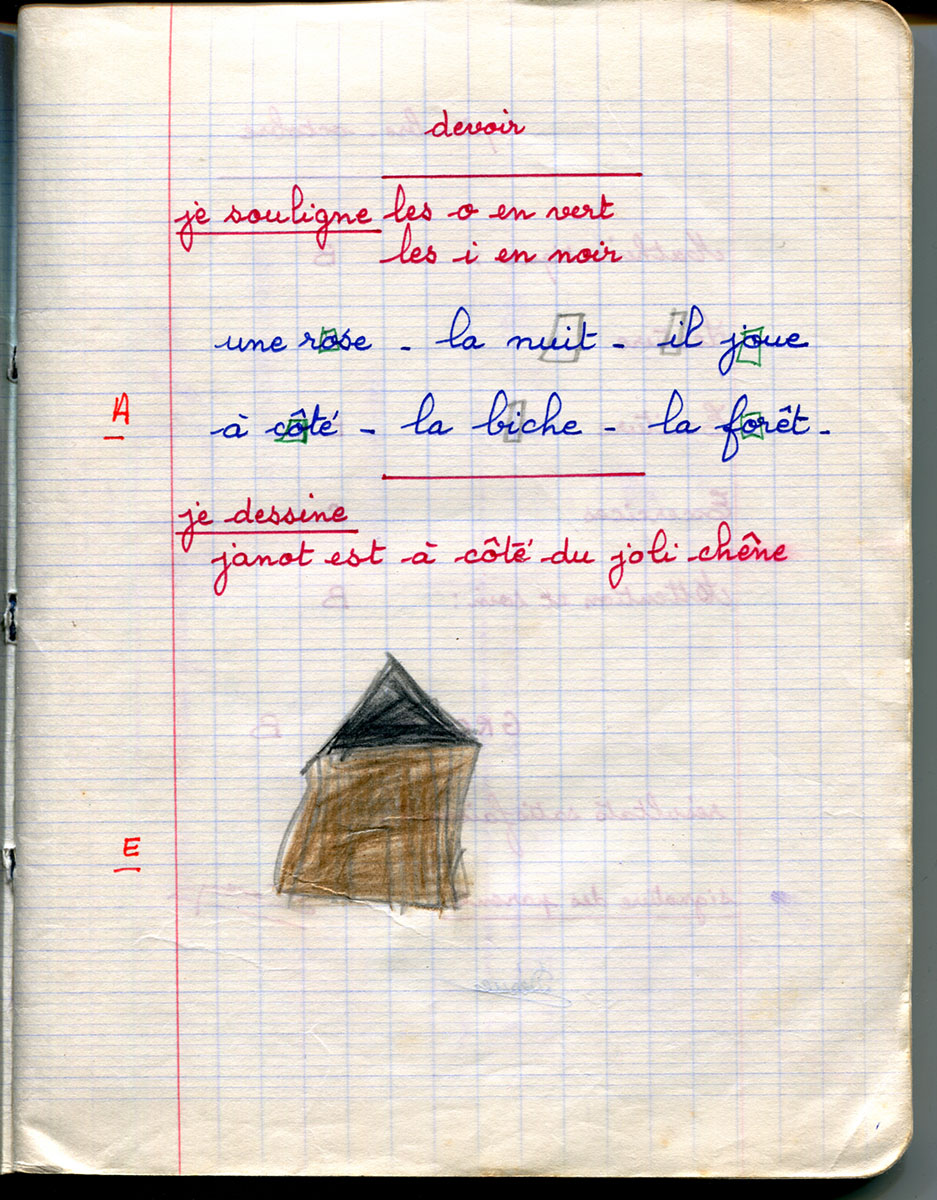 devoir
je souligne les o en vert
les i en noir
une rose - la nuit - il joue
A
à côté - la biche - la forêt -
je dessine
janot est à côté du joli chêne
E